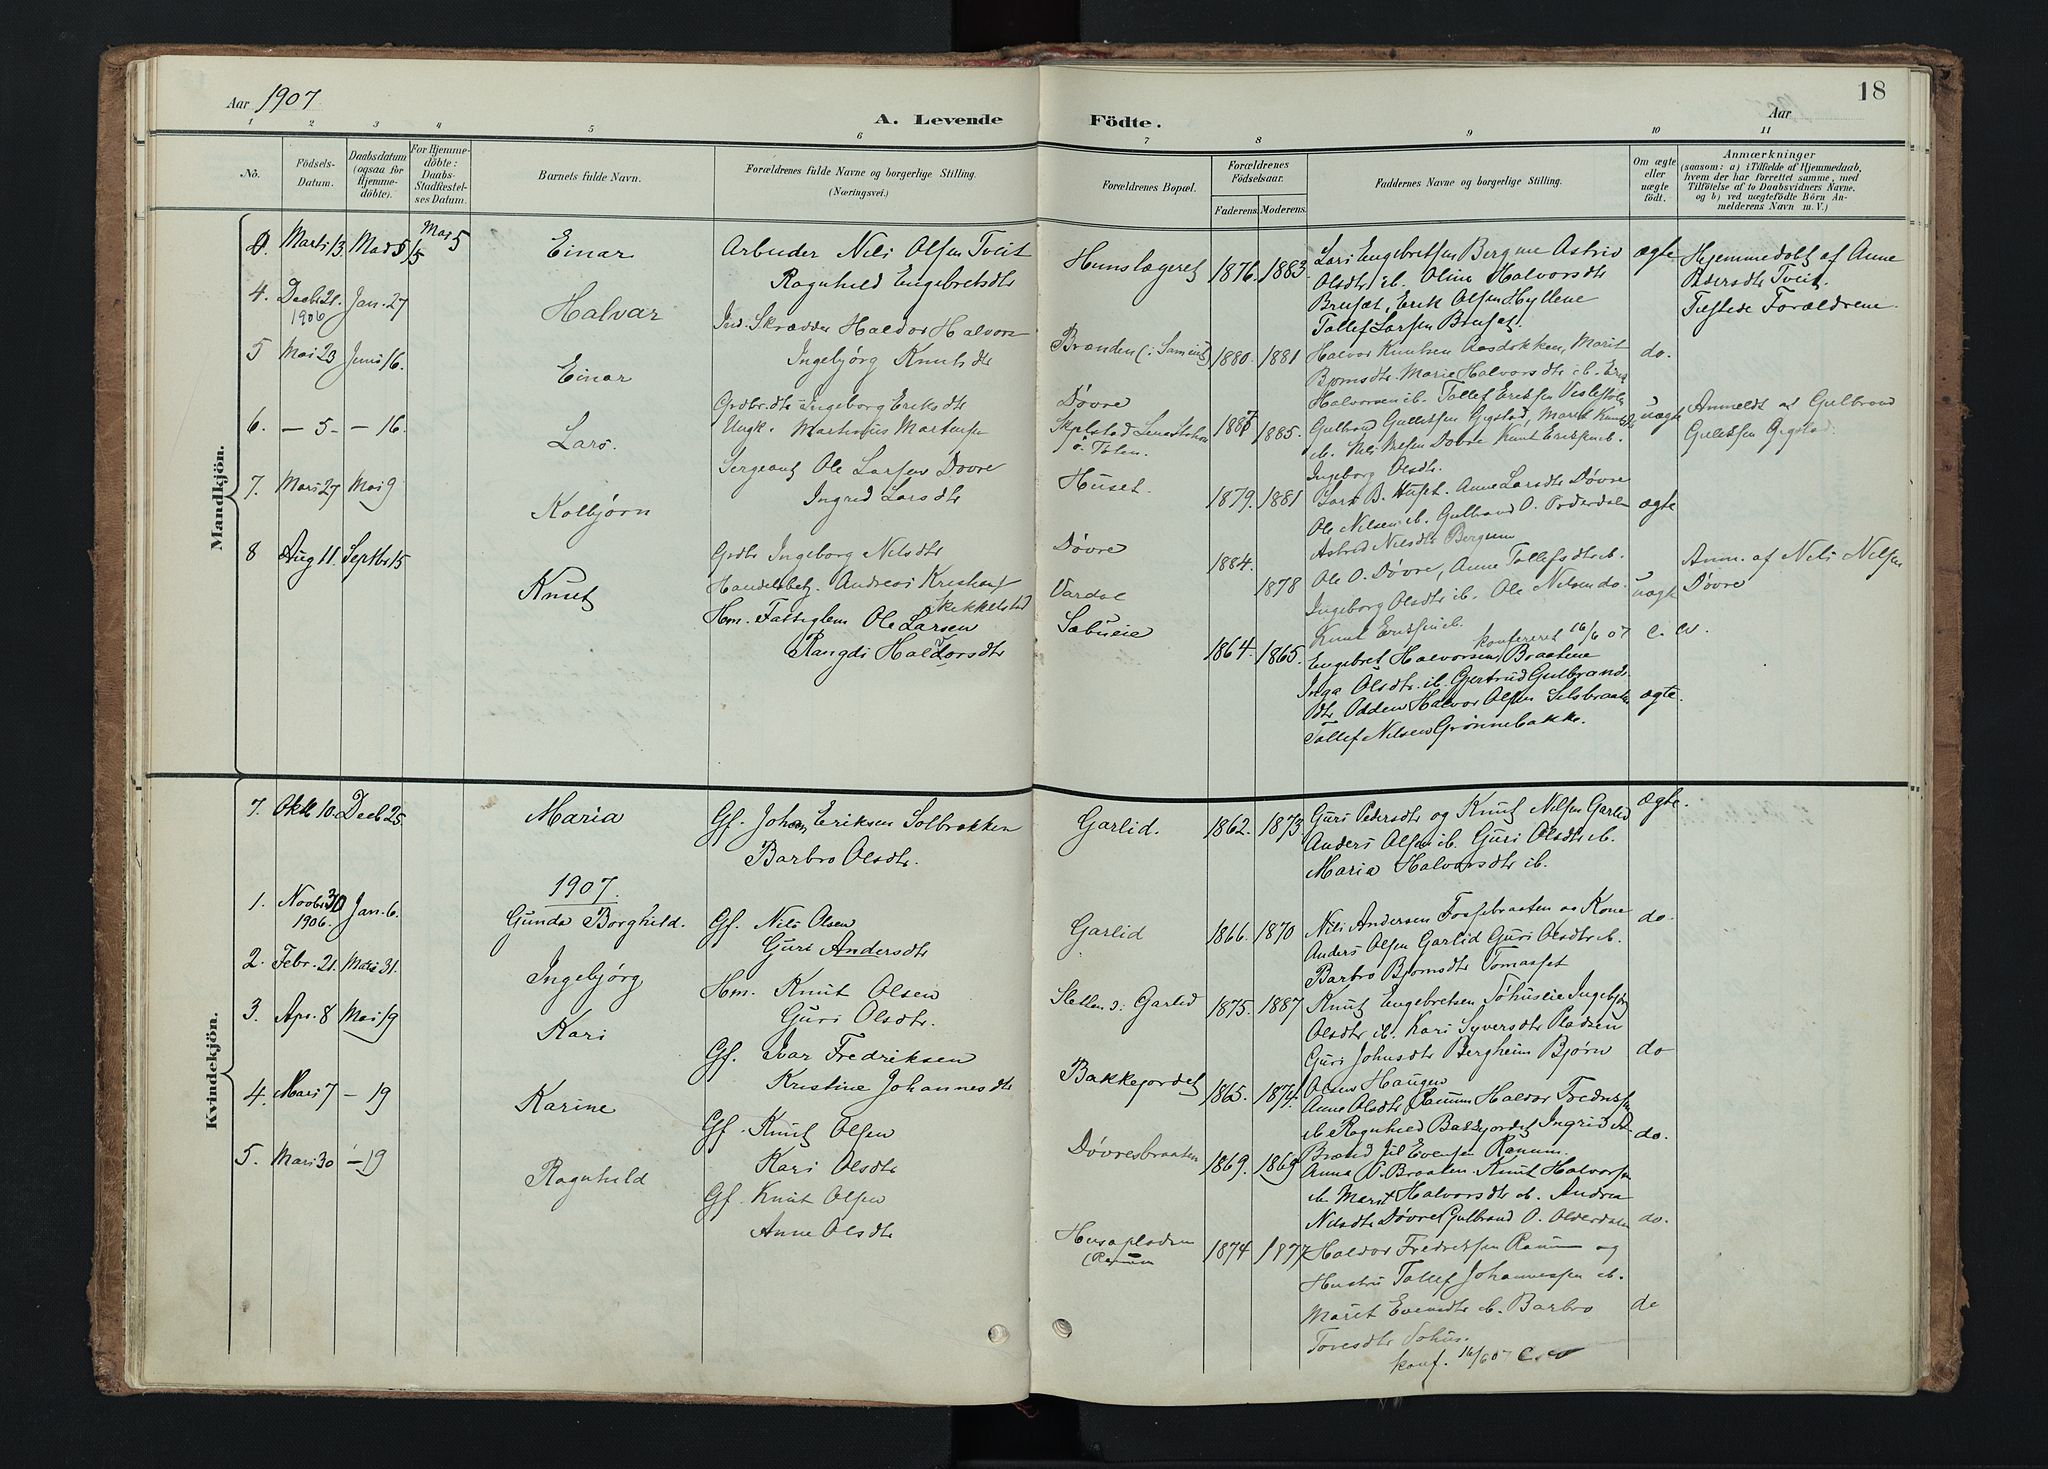 Aar 1907
A. Levende Födte.
Aar
18
1 2 3 4 5 6 7 8 9 10 11
No.
Födsels-Datum.
Daabsdatum (ogsaa for Hjemme-döbte).
For Hjemme-döbte: Daabs-Stadfæstel-ses Datum.
Barnets fulde Navn.
Forældrenes fulde Navne og borgerlige Stilling.
(Næringsvei.)
Forældrenes Bopæl.
Forældrenes Födselsaar.
Faderens. Moderens.
Faddernes Navne og borgerlige Stilling.
Om ægte eller uægte födt.
Anmærkninger
(saasom: a) i Tilfælde af Hjemmedaab, hvem der har forrettet samme, med Tilföielse af to Daabsvidners Navne. og b) ved uægtefödte Börn An-melderens Navn m. V.)
Mandkjön.
Marts 13. Mai 5 Mai 5
Einar
Arbeider Nils Olsen Tveit
Ragnhild Engebretsdtr
Hunslægeret 1876. 1883.
Lars Engebretsen Bergene Astrid
Olsdtr ib. Oline Halvorsdtr
Brusæt, Erik Olsen Hyllene
Tollef Larsen Brusæt.
ægte
Hjemmedøbt af Anne
Pedersdtr Tveit.
Tilstede Forældrene
4. Decbr 21. 1906 Jan. 27
Halvar
Ind. Skrædder Haldor Halvors
Ingebjørg Knutsdtr
Brænden 1880. 1881
Halvor Knutsen Marit
Bjørnsdtr. Marie Halvorsdtr ib.
Halvorsen ib. Tollef Eriksen
do.
5 Mai 23 Juni 16.
Einar
Grdbr.dtr Ingeborg Eriksdtr
Ungk. Martinus Martensen
Døvre
Ø. Toten.
1885.
Gulbrand Gulliksen Gigstad, Marit
ib. Nils Nilsen Døvre Knut Eriksen ib.
Ingeborg Olsdtr.
uægte
Anmeldt af Gulbrand
Gulliksen Gigstad.
6. — 5 — 16.
Lars.
Sergeant Ole Larsen Døvre
Ingrid Larsdtr
Huset.
1879. 1881
Lars B. Huset. Anne Larsdtr Døvre
Ole Nilsen ib. Gulbrand O.
Astrid Nilsdtr Bergene
ægte
7. Mars 27 Mai 9
Kolbjørn
Grdbr Ingeborg Nilsdtr
Handelsbetj. Andreas Kristiansen
Døvre
Vardal
1884. 1878
Ole O. Døvre, Anne Tollefsdtr ib.
Ingeborg Olsdtr ib. Ole Nilsen do.
Knut Eriksen ib.
uægte
Anm. af Nils Nilsen
Døvre
konfereret 16/6 07 C. W.
8 Aug 11. Septbr 15
Knut
Hm. Fattiglem Ole Larsen
Rangdi Haldorsdtr
1864. 1865.
Engebret Halvorsen Braatene
Inga Olsdtr. ib. Gjertrud Gulbrands
dtr Odden Halvor Olsen
Tollef Nilsen Grønnebakke.
ægte.
Kvindekjön.
7. Oktb 10. Decb 25.
Maria
Gf. Johan Eriksen Solbrekken
Barbro Olsdtr.
Garlid. 1862. 1873
Guri Pedersdtr og Knut Nilsen Garlid
Anders Olsen ib. Guri Olsdtr ib.
Maria Halvorsdtr ib.
ægte.
1907.
1. Novbr 30 1906. Jan. 6.
Gunda Borghild.
Gf. Nils Olsen
Guri Andersdtr
Garlid 1866. 1870
Nils Andersen Fossebraaten og Kone
Anders Olsen Garlid Guri Olsdtr ib.
Barbro Bjørnsdtr Tomasset
do.
2. Febr. 21. Mars 31.
Ingebjørg
Hm. Knut Olsen
Guri Olsdtr.
Garlid 1875. 1887
Knut Engebretsen Ingebjørg
Olsdtr ib. Kari Syversdtr Pladsen
Guri Johnsdtr Bergheim Bjørn
Olsen Haugen
do
3. Apr. 8 Mai 19
Kari
Gf. Ivar Fredriksen
Kristine Johannesdtr
Bakkejordet 1865. 1874.
Anne Olsdtr Ranum Haldor Fredriksen
ib. Ragnhild Bakkejordet Ingrid
Evensen Ranum.
do.
4. Mars 7 — 19
Karine
Gf. Knut Olsen
Kari Olsdtr
Døvresbraaten 1869. 1869
Anna O. Braaten. Knut Halvorsen
ib. Marit Halvorsdtr ib. Andrea
Nilsdtr Døvre Gulbrand O. Olderdalen
do.
5. Mars 30 — 19
Ragnhild
Gf. Knut Olsen
Anne Olsdtr
(Ranum
1874 1877
Haldor Fredriksen Ranum og
Hustru Tollef Johannessen ib.
Marit Evensdtr ib. Barbro
Toresdtr
do
konf. 16/6 07 C. W